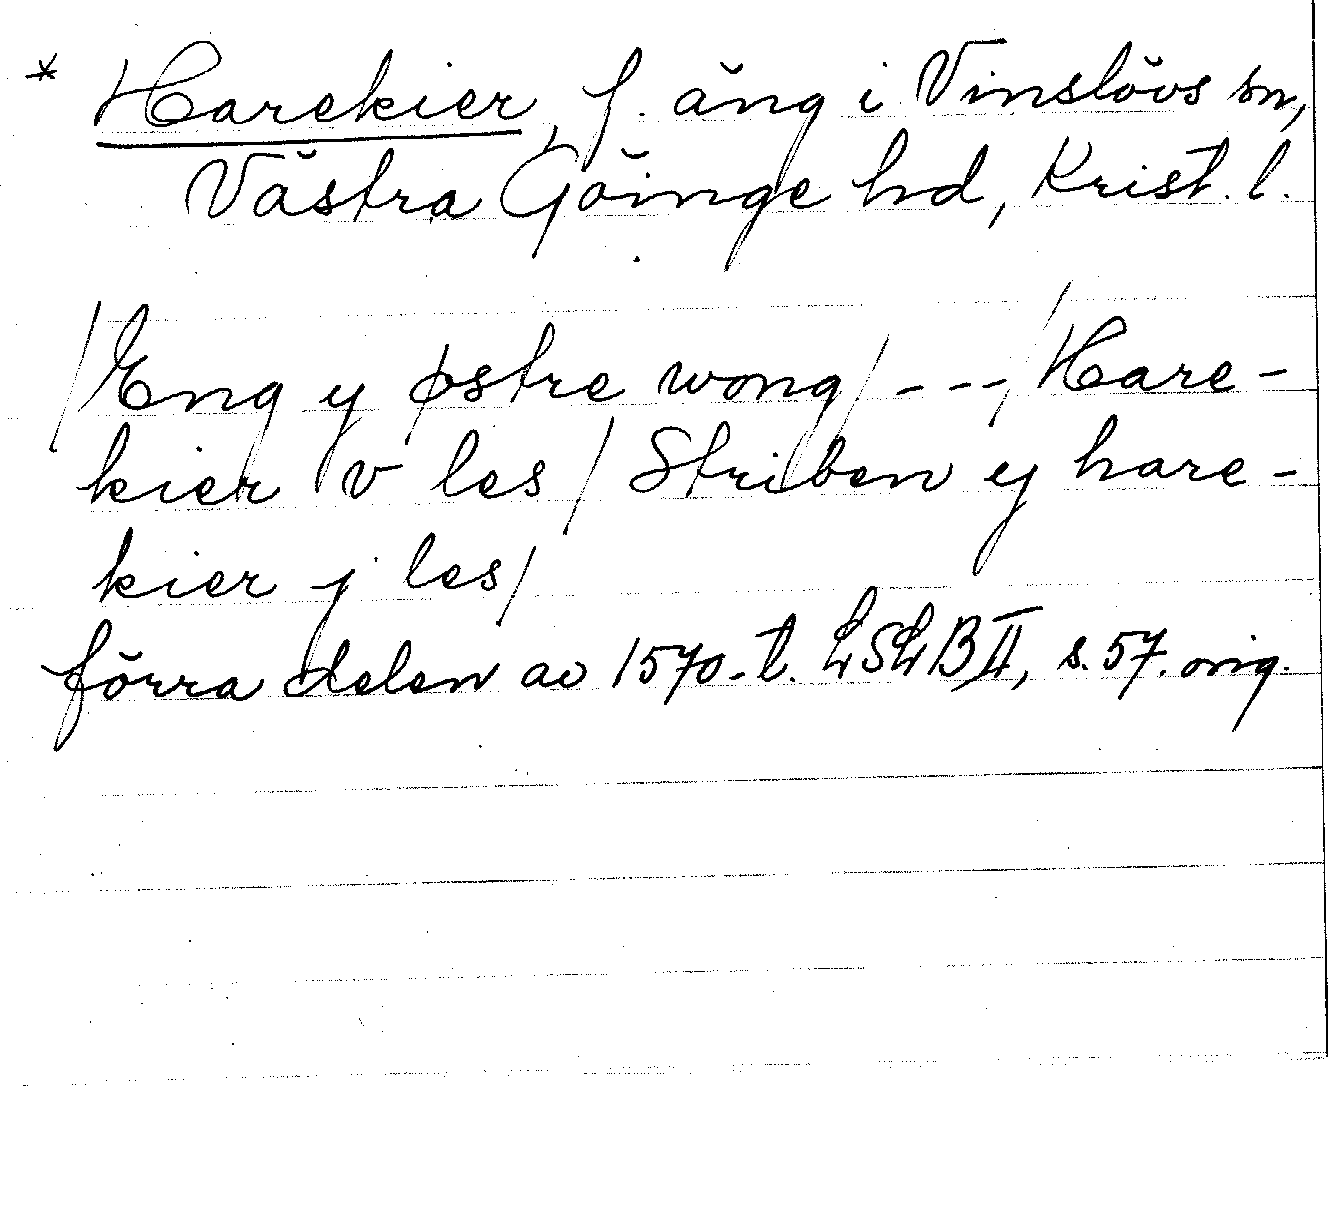 * Harekier, f. äng i Vinslövs sn,
Västra Göinge hd, Krist. l.
/Eng y østre wong/ --- /Hare-
kier v les / Striben y hare-
kier j les/
förra delen av 1570-t. LSLB II, s. 57. orig.